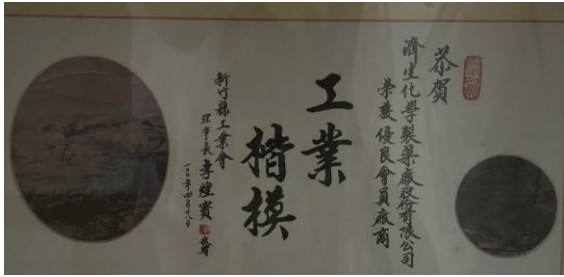 恭賀
濟生化學製藥廠股份有限公司
榮獲優良會員廠商
工業
楷模
新竹縣工業會
理事長 李煌賓 敬贈
一〇一年四月廿八日